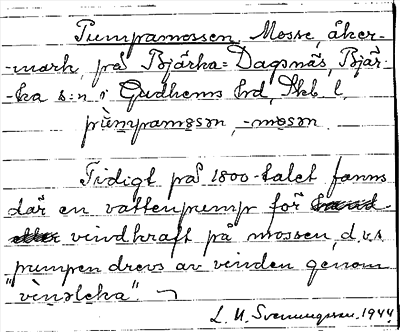 Pumpamossen. Mosse åker-
-mark, på Bjärka= Dagsnäs, Bjär-
-ka s:n i Gudhems hd, Skb. l.
pùmpamosən, -mosən
Tidigt på 1800-talet fanns
där en vattenpump för
vindkraft på mossen, d.v.s.
pumpen drevs av vinden genom
"vìnəleka". ¬
L. M. Svenungsson. 1944